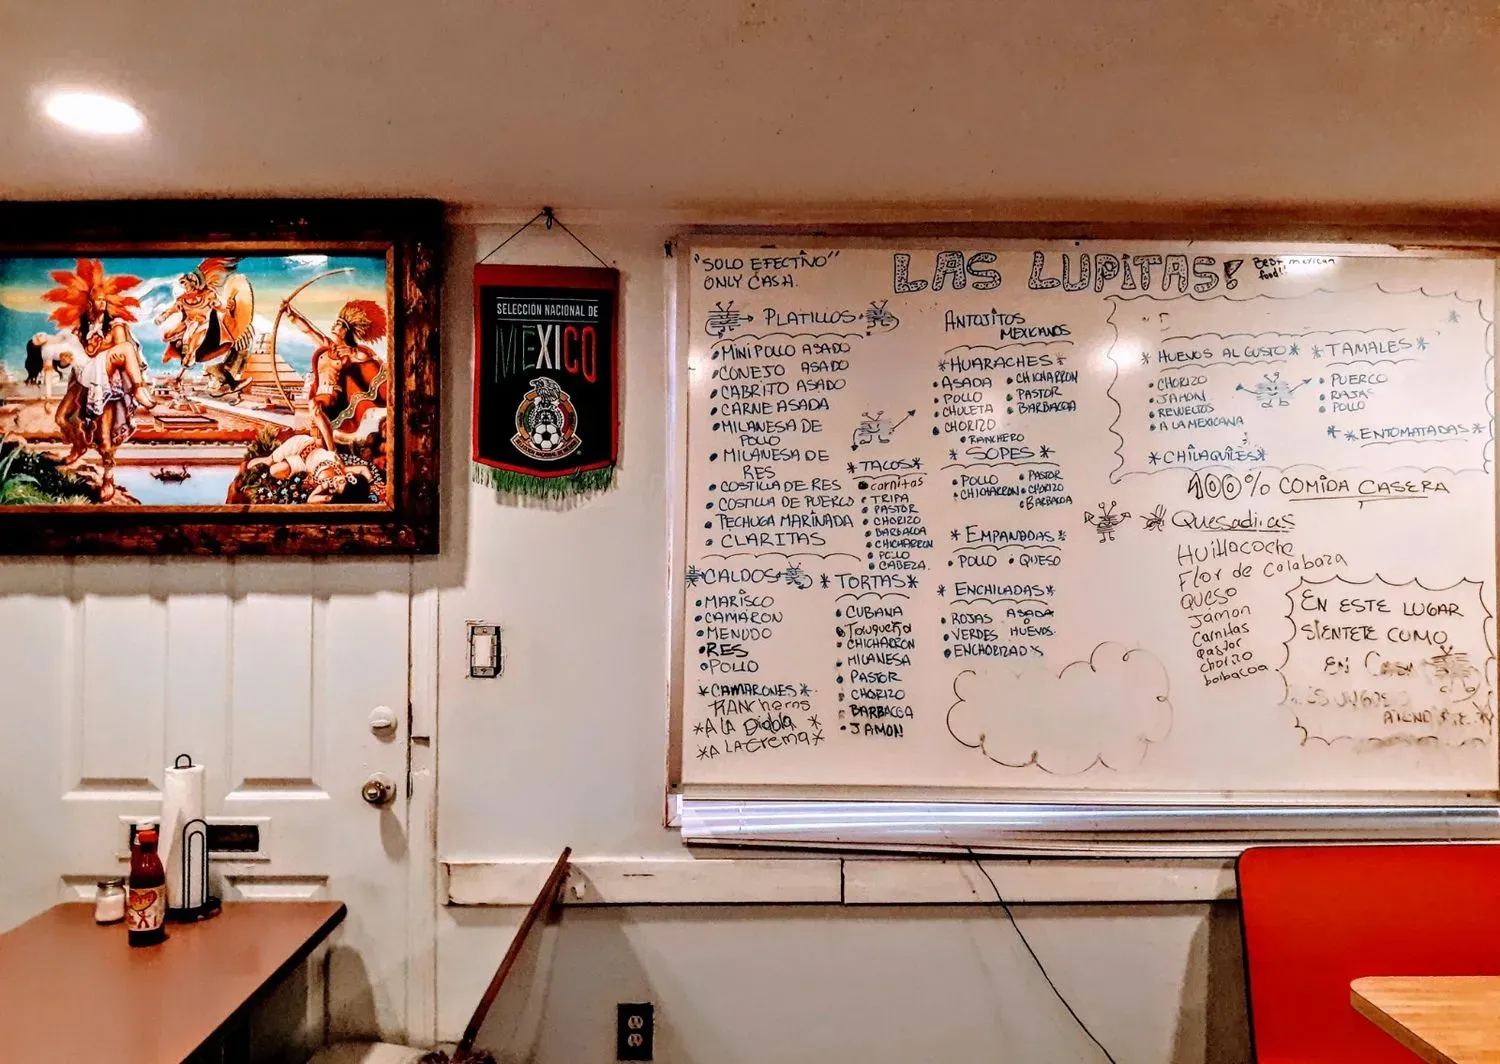 SELECCIÓN NACIONAL DE
MEXICO
"SOLO EFECTIVO"
ONLY CASH.
LAS LUPITAS!
Best mexican
food!!
PLATILLOS
MINI POLLO ASADO
CONEJO ASADO
CABRITO ASADO
CARNE ASADA
MILANESA DE
POLLO
MILANESA DE
RES
COSTILLA DE RES
COSTILLA DE PUERCO
PECHUGA MARINADA
CLARITAS
CALDOS
MARISCO
CAMARON
MENUDO
RES
POLLO
*CAMARONES*
RANcheros
*A LA Diabla *
*A LA crema*
*TACOS*
carnitas
TRIPA
PASTOR
CHORIZO
BARBACOA
CHICHARRON
POLLO
CABEZA.
*TORTAS*
CUBANA
CHICHARRON
MILANESA
PASTOR
CHORIZO
BARBACOA
JAMON
ANTOJITOS
MEXICANOS
*HUARACHES*
ASADA
POLLO
CHULETA
CHORIZO
RANCHERO
CHICHARRON
PASTOR
BARBACOA
* SOPES *
POLLO
CHICHARRON
PASTOR
CHORIZO
BARBACOA
*EMPANADAS*
POLLO QUESO
* ENCHILADAS*
ROJAS ASADA
VERDES HUEVOS
* HUEVOS AL GUSTO *
CHORIZO
JAMON
REVUELTOS
A LA MEXICANA
*CHILAQUILES*
* TAMALES *
PUERCO
RAJAS
POLLO
* *ENTOMATADAS*
100% COMIDA CASERA
Quesadillas
Huitlacoche
Flor de calabaza
QUESO
Jamon
Carnitas
Pastor
chorizo
EN ESTE LUGAR
SIENTETE COMO
EN Casa